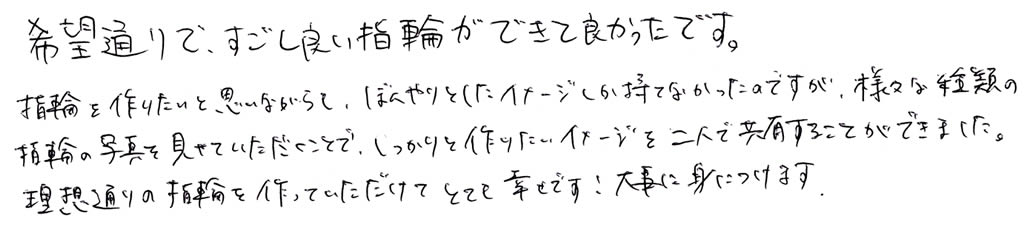 希望通りで、すごし良い指輪ができて良かったです。
指輪を作りたいと思いながらも、ぼんやりとしたイメージしか持てなかったのですが、様々な種類の
指輪の写真を見せていただくことで、しっかりと作りたいイメージを二人で共有することができました。
理想通りの指輪を作っていただけてとても幸せです！大事に身につけます.